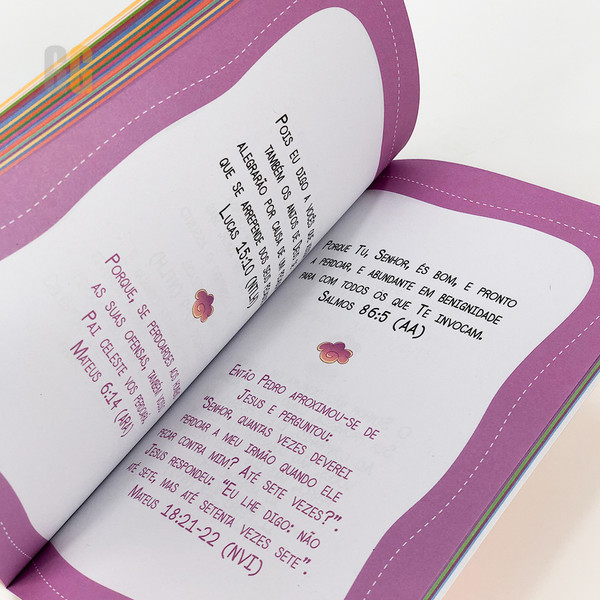 Pois eu digo a vocês
também os anjos de
alegrarão por causa de
que se arrepende dos seus
Lucas 15:10
Porque, se perdoardes aos
as suas ofensas, também
Pai celeste vos perdoará.
Mateus 6:14 (ARA)
Porque Tu, Senhor, és bom, e pronto
a perdoar, e abundante em benignidade
para com todos os que Te invocam.
Salmos 86:5 (AA)
Então Pedro aproximou-se de
Jesus e perguntou:
"Senhor, quantas vezes deverei
perdoar a meu irmão quando ele
pecar contra mim? Até sete vezes?".
Jesus respondeu: "Eu lhe digo: não
até sete, mas até setenta vezes sete".
Mateus 18:21-22 (NVI)